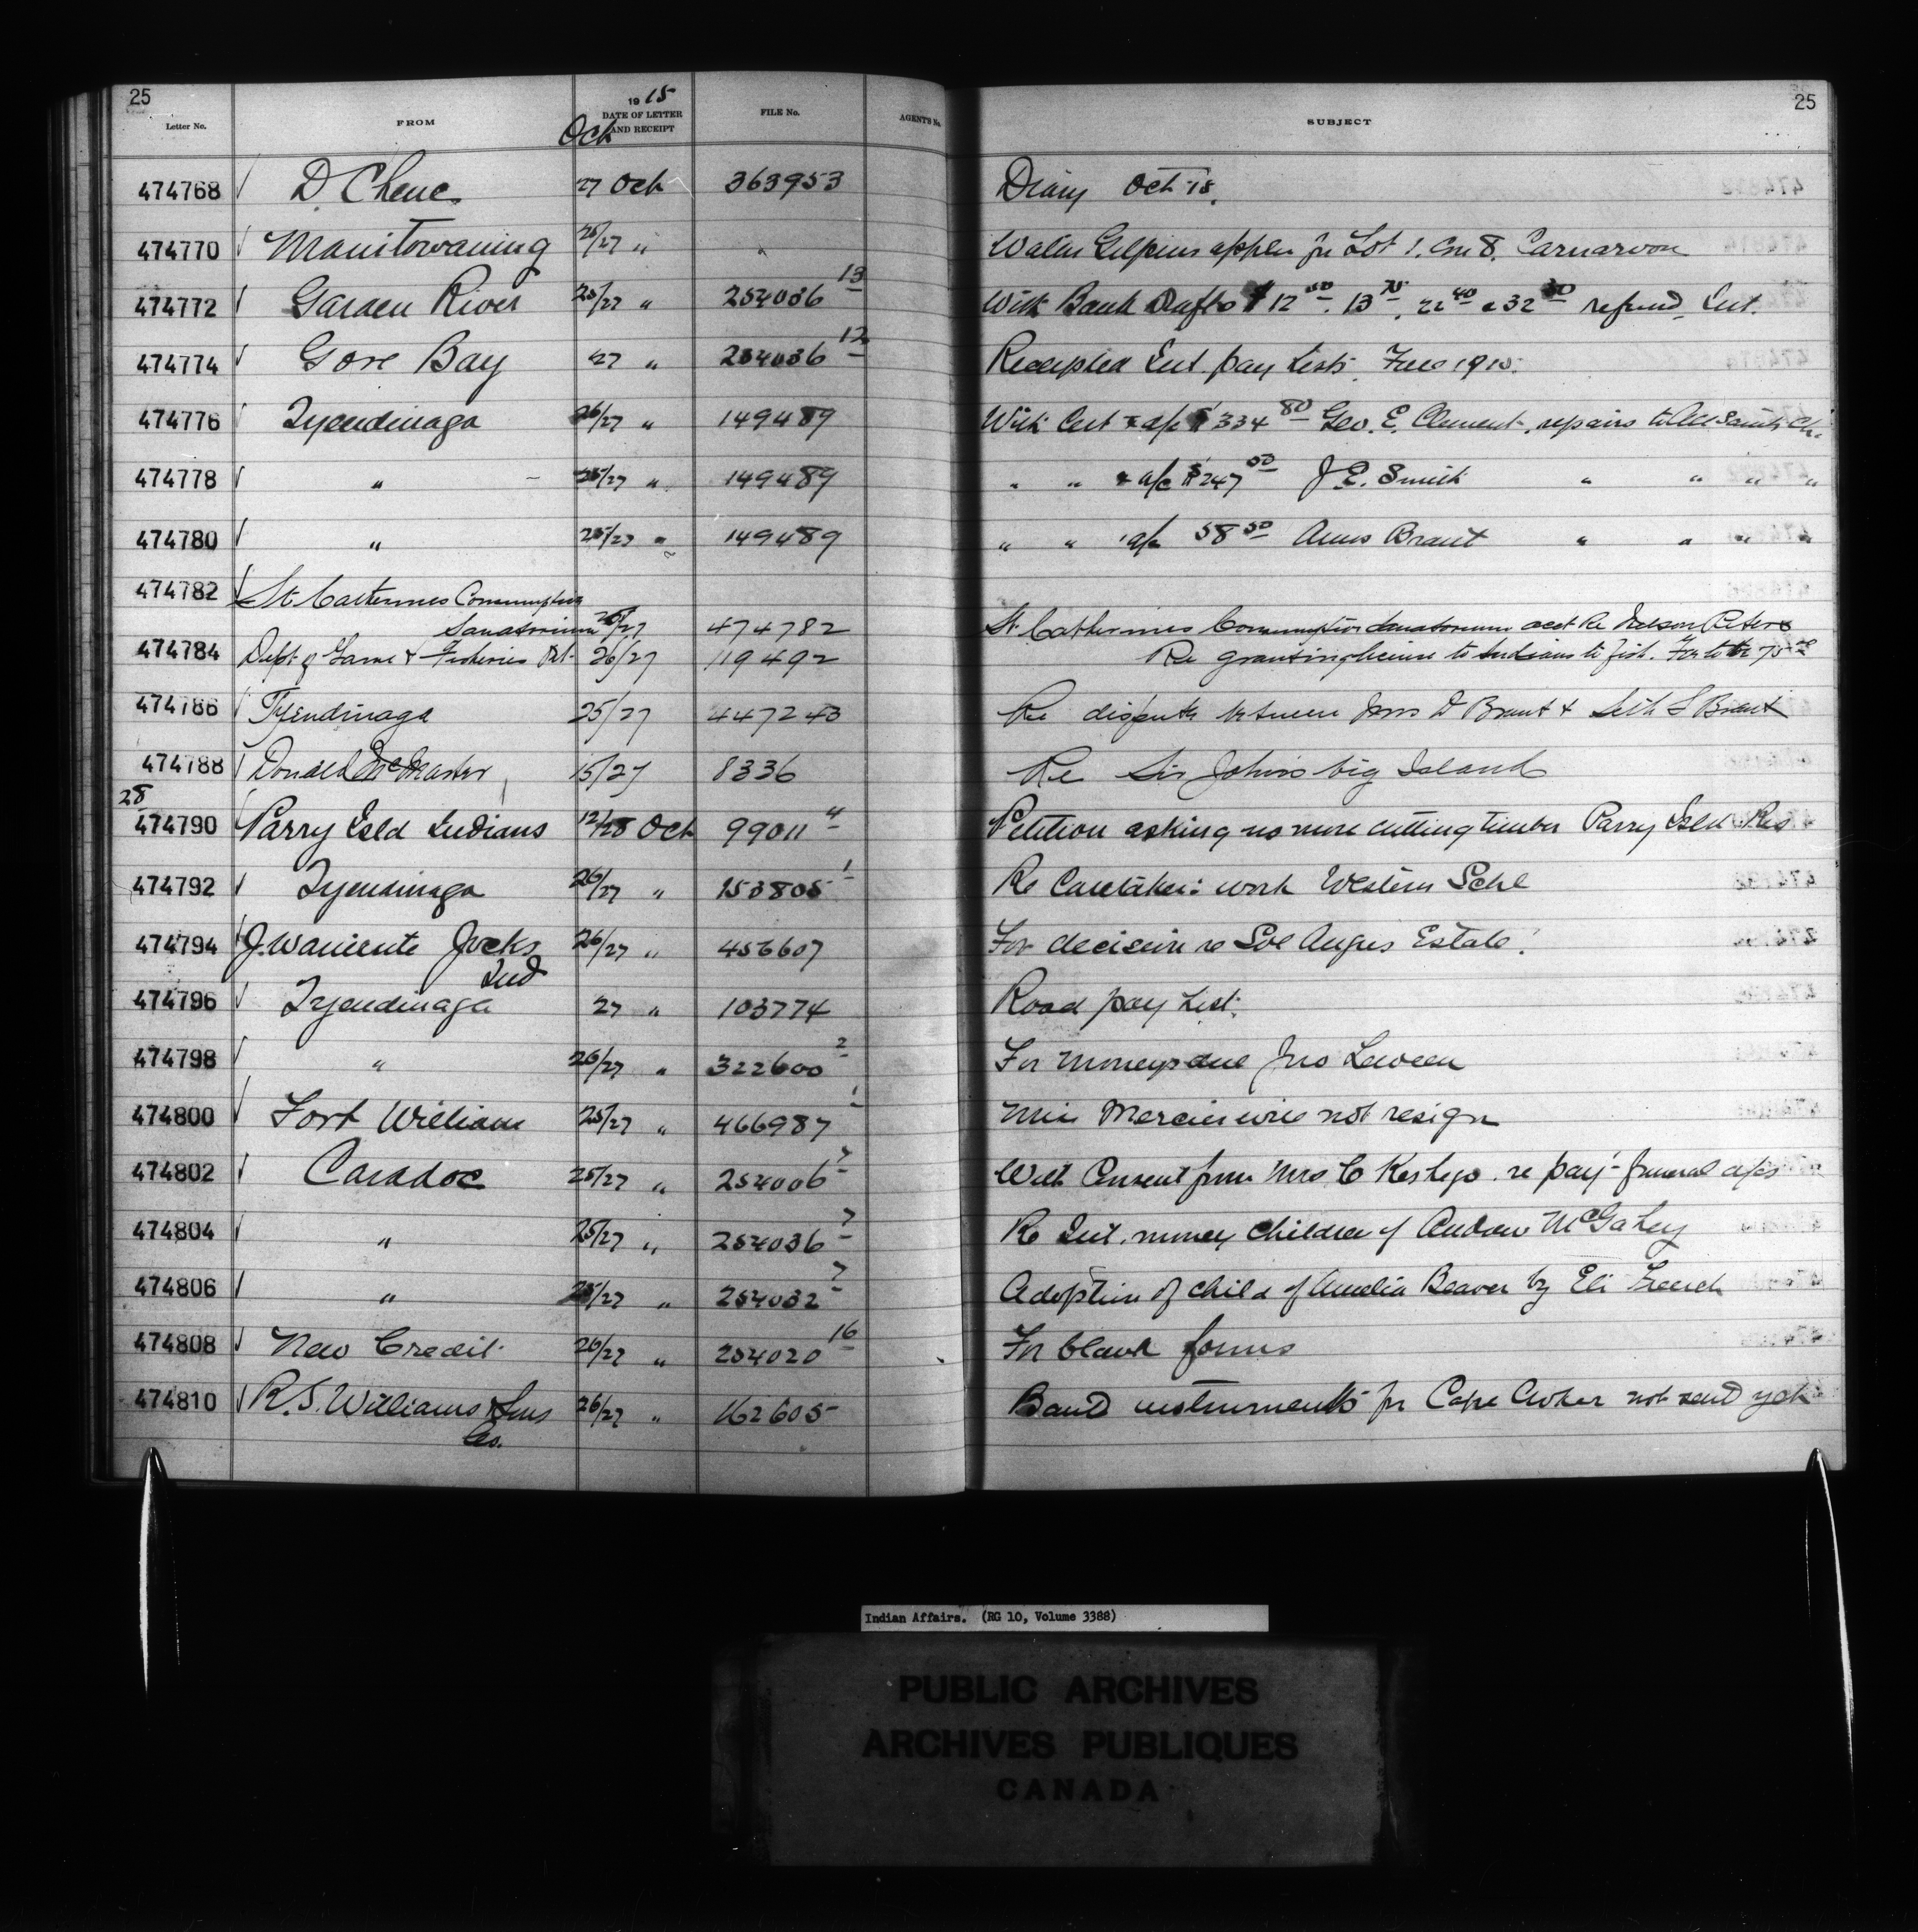 25
25
Letter No. FROM 1915 DATE OF LETTER AND RECEIPT FILE No. AGENT'S No. SUBJECT
Oct
474768 D. Chene 27 Oct 363953 Diary Oct 15.
474770 Manitowaning 26/27 " Gilpins appln for Lot 1. Con 8. Carnarvon
474772 Garden River 25/27 " 254036 13 With Bank Drafts $12 50. 13 75. 22 40 & 32 50 refund Int.
474774 Gore Bay 27 " 254036 12 Receipted Int. pay Lists 1915.
474776 Tyendinaga 26/27 " 149489 With Cert & a/c $334 80 Geo. E. Clement, repairs to All Saints Ch.
474778 " 25/27 " 149489 " " & a/c $247 50 J E. Smith " " " "
474780 " 25/27 " 149489 " " a/c 58 50 Brant " " " "
474782 St. Catherines Consumptive
Sanatorium 26/27 474782 St. Catherines Consumptive Sanatorium acct Re Nelson Peters
474784 Dept of Game & Fisheries Ont. 26/27 119492 Re granting license to Indians to fish.
474786 Tyendinaga 25/27 447243 Re dispute between D Brant & Seth S Brant
474788 Donald McMaster 15/27 8336 Re Sir John's big Island
28
474790 Parry Isld Indians 12/28 Oct 99011 4 Petition asking no more cutting timber Parry Isld Res
474792 Tyendinaga 26/27 " 153805 1 Re Caretaker: work Western Schl
474794 J. Waniente Jocks 26/27 " 456607 For decision re Sol Angus Estate.
Ind
474796 Tyendinaga 27 " 103774 Road pay List.
474798 " 26/27 " 322600 2 For moneys due Jno
474800 Fort William 25/27 " 466987 1 Miss Mercier will not resign
474802 Caradoc 25/27 " 254006 7 With Consent from Mrs C Keshego re pay't funeral a/cs
474804 " 25/27 " 254036 7 Re Int. money children of Andrew McGahey
474806 " 25/27 " 254032 7 Adoption of child of Amelia Beaver by Eli French
474808 New Credit 26/27 " 254020 16 For blank forms
474810 R.S. Williams & Sons 26/27 " 162605 Band instruments for Cape Croker not send yet
Co.
Indian Affairs. (RG 10, Volume 3388)
PUBLIC ARCHIVES
ARCHIVES PUBLIQUES
CANADA